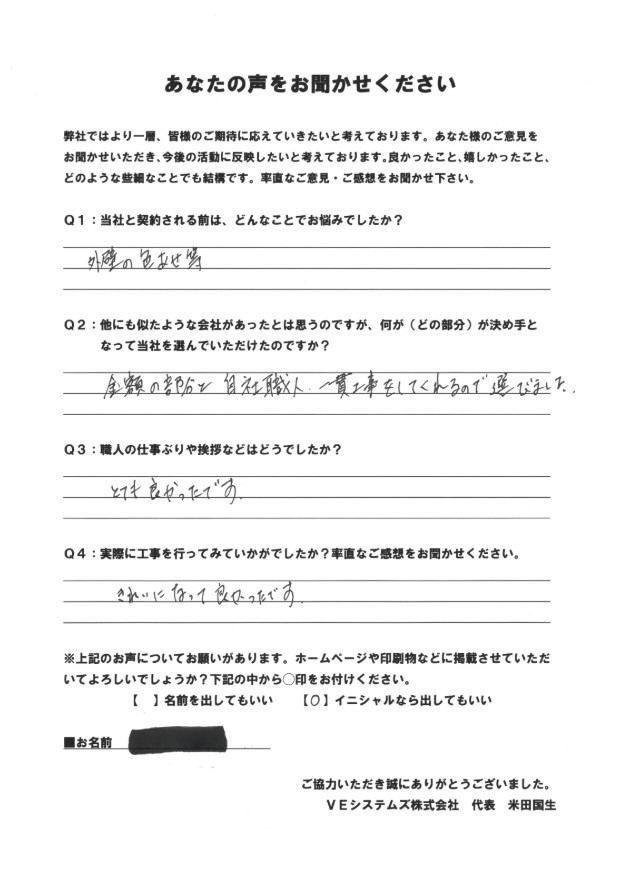 あなたの声をお聞かせください
弊社ではより一層、皆様のご期待に応えていきたいと考えております。あなた様のご意見を
お聞かせいただき、今後の活動に反映したいと考えております。良かったこと、嬉しかったこと、
どのような些細なことでも結構です。率直なご意見・ご感想をお聞かせ下さい。
Q1：当社と契約される前は、どんなことでお悩みでしたか？
外壁の色あせ等
Q2：他にも似たような会社があったとは思うのですが、何が（どの部分）が決め手と
なって当社を選んでいただけたのですか？
金額の部分と自社職人、一貫工事をしてくれるので選びました。
Q3：職人の仕事ぶりや挨拶などはどうでしたか？
とても良かったです。
Q4：実際に工事を行ってみていかがでしたか？率直なご感想をお聞かせください。
きれいになって良かったです。
※上記のお声についてお願いがあります。ホームページや印刷物などに掲載させていただ
いてよろしいでしょうか？下記の中から○印をお付けください。
【　】名前を出してもいい　【○】イニシャルなら出してもいい
■お名前
ご協力いただき誠にありがとうございました。
VEシステムズ株式会社　代表　米田国生